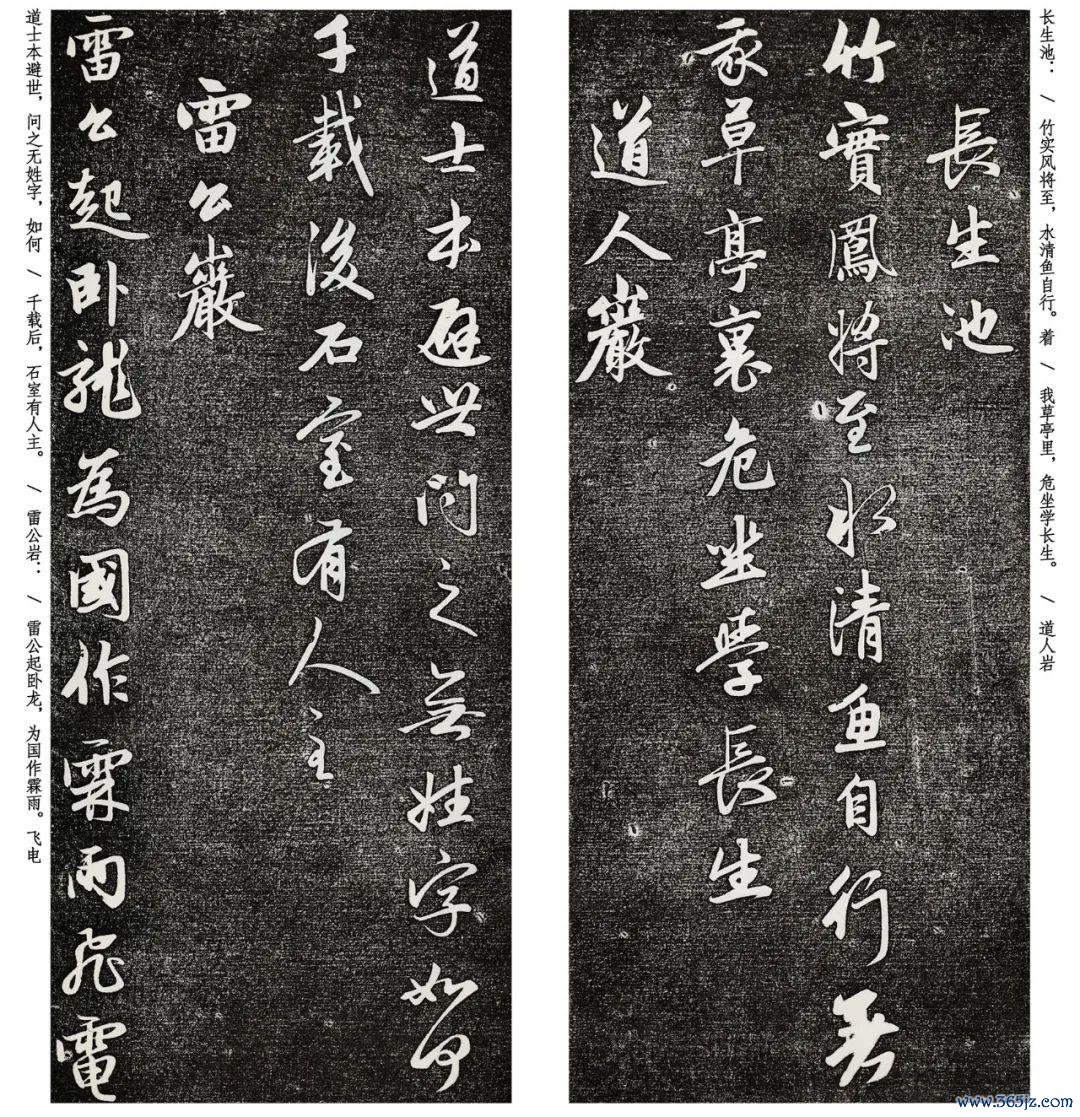 长生池： / 竹实风将至，水清鱼自行。着 / 我草亭里，危坐学长生。 / 道人岩
長生池
竹實鳳將至水清魚自行着
我草亭裏危坐學長生
道人巖
道士本避世問之無姓字如何
千載後石室有人主
雷公巖
雷公起卧龍為國作霖雨飛電
道士本避世，问之无姓字，如何 / 千载后，石室有人主。 / 雷公岩： / 雷公起卧龙，为国作霖雨。飞电
www.365jz.com